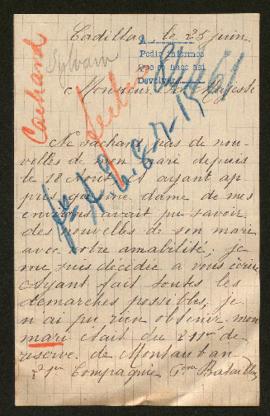 Cadillac, le 25 juin
Pedir informes
Que se haga así
Devolver
Sylvain
Cachand
Monsieur Sa Majesté
Ne sachant pas de nou-
velles de mon mari depuis
le 18 ayant ap-
pris qu'une dame de mes
environs avait pu savoir
des nouvelles de son mari
avec votre amabilité, je
me suis décidée à vous écrire
ayant fait toutes les
démarches possibles, je
n'ai pu rien obtenir mon
mari était du 211e de
reserve de Montauban
Compagnie Bataillon